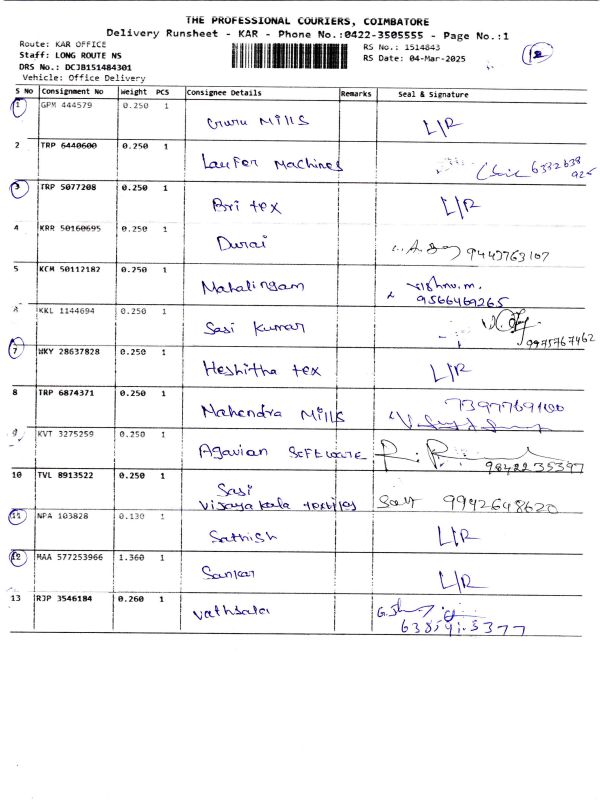 THE PROFESSIONAL COURIERS, COIMBATORE
Delivery Runsheet - KAR - Phone No.:0422-3505555 - Page No.:1
Route: KAR OFFICE
RS No.: 1514843
Staff: LONG ROUTE NS
RS Date: 04-Mar-2025
DRS No.: DCJB151484301
Vehicle: Office Delivery
12
S No Consignment No Weight PCS Consignee Details Remarks Seal & Signature
1 GPM 444579 0.250 1 Guru Mills L/R
2 TRP 6440600 0.250 1 Laufer Machines
3 TRP 5077208 0.250 1 Bri tex L/R
4 KRR 50160695 0.250 1 Durai 9443763107
5 KCM 50112182 0.250 1 Mahalingam Vishnu.m.
9566469265
KKL 1144694 0.250 1 Sasi Kumar
9975767462
7 WKY 28637828 0.250 1 Heshitha tex L/R
8 TRP 6874371 0.250 1 Mahendra Mills 7397769100
9 KVT 3275259 0.250 1 Agavian Software 9842235397
10 TVL 8913522 0.250 1 Sasi
Vijaya kala textiles 9942648620
11 NPA 103828 0.130 1 Sathish L/R
12 MAA 577253966 1.360 1 Sankar L/R
13 RJP 3546184 0.260 1 Vathsala